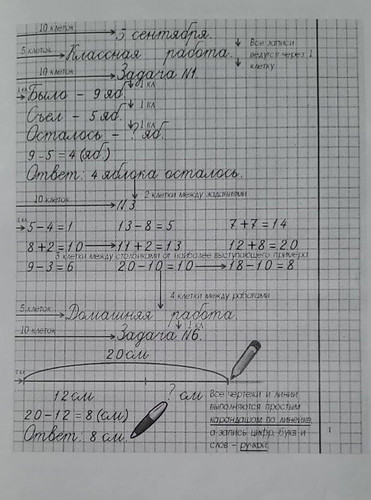 10 клеток 5 сентября.
5 клеток Классная работа. Все записи ведутся через 1 клетку
10 клеток Задача №1.
1 кл 1 кл
Было - 9 яб.
1 кл
Съел - 5 яб.
1 кл
Осталось - ? яб.
9 - 5 = 4 (яб)
Ответ: 4 яблока осталось.
2 клетки между заданиями
10 клеток №3
1 кл
5 - 4 = 1 13 - 8 = 5 7 + 7 = 14
8 + 2 = 10 11 + 2 = 13 12 + 8 = 20
3 клетки между столбиками от наиболее выступающего примера
9 - 3 = 6 20 - 10 = 10 18 - 10 = 8
4 клетки между работами
5 клеток Домашняя работа.
1 кл
10 клеток Задача №6.
20 см
1 кл
12 см ? см
20 - 12 = 8 (см)
Ответ: 8 см.
Все чертежи и линии
выполняются простым
карандашом по линейке,
а запись цифр, букв и
слов - ручкой.
1